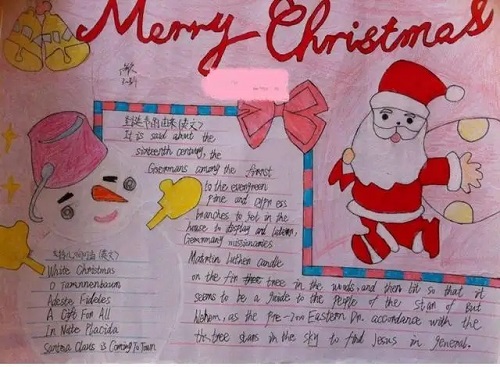 Merry Christmas
圣诞节的由来(英文)
It is said about the
sixteenth century, the
Greimans among the forost
to the evergreen
Pine and cypress
branches to Jet in the
house to display and latern,
Gemmany missionaries
Matrtin Luthen candle
on the fir tree in the woods, and then lit so that it
seems to be a guide to the people of the stan of But
Nehem, as the Pre-2000 Eastern Dn. accordance with the
th-tree stars in the sky to find Jesus in general.
(英文)
White Christmas
O Tamnnenbaum
Adeste Fideles
A Gift For All
In Nate Placida
Santma Claus is Coming To Town